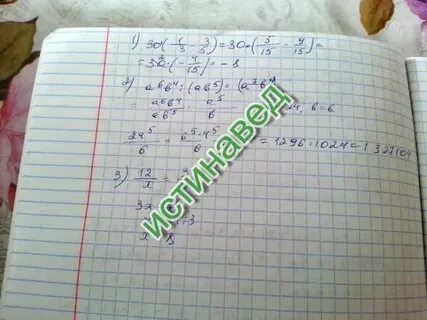 1) 30(1/3 - 3/5) = 30·(5/15 - 9/15) =
= 30·(-4/15) = -8
2) a⁶b⁴ : (ab⁵) =
= a⁶b⁴/ab⁵ = a⁵/b 24, b=6
24⁵/6 = 6⁵·4⁵/6 = 1296·1024 = 1 327104
3) 12/x =
3x
x 8
ИСТИНАВЕД